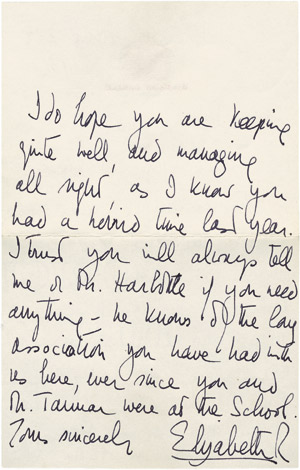 I do hope you are keeping
quite well, and managing
all right, as I know you
had a horrid time last year.
I trust you will always tell
me or Mr. Harbottle if you need
anything – he knows of the long
association you have had with
us here, ever since you and
Mr. Tanner were at the School.
Yours sincerely
Elizabeth R